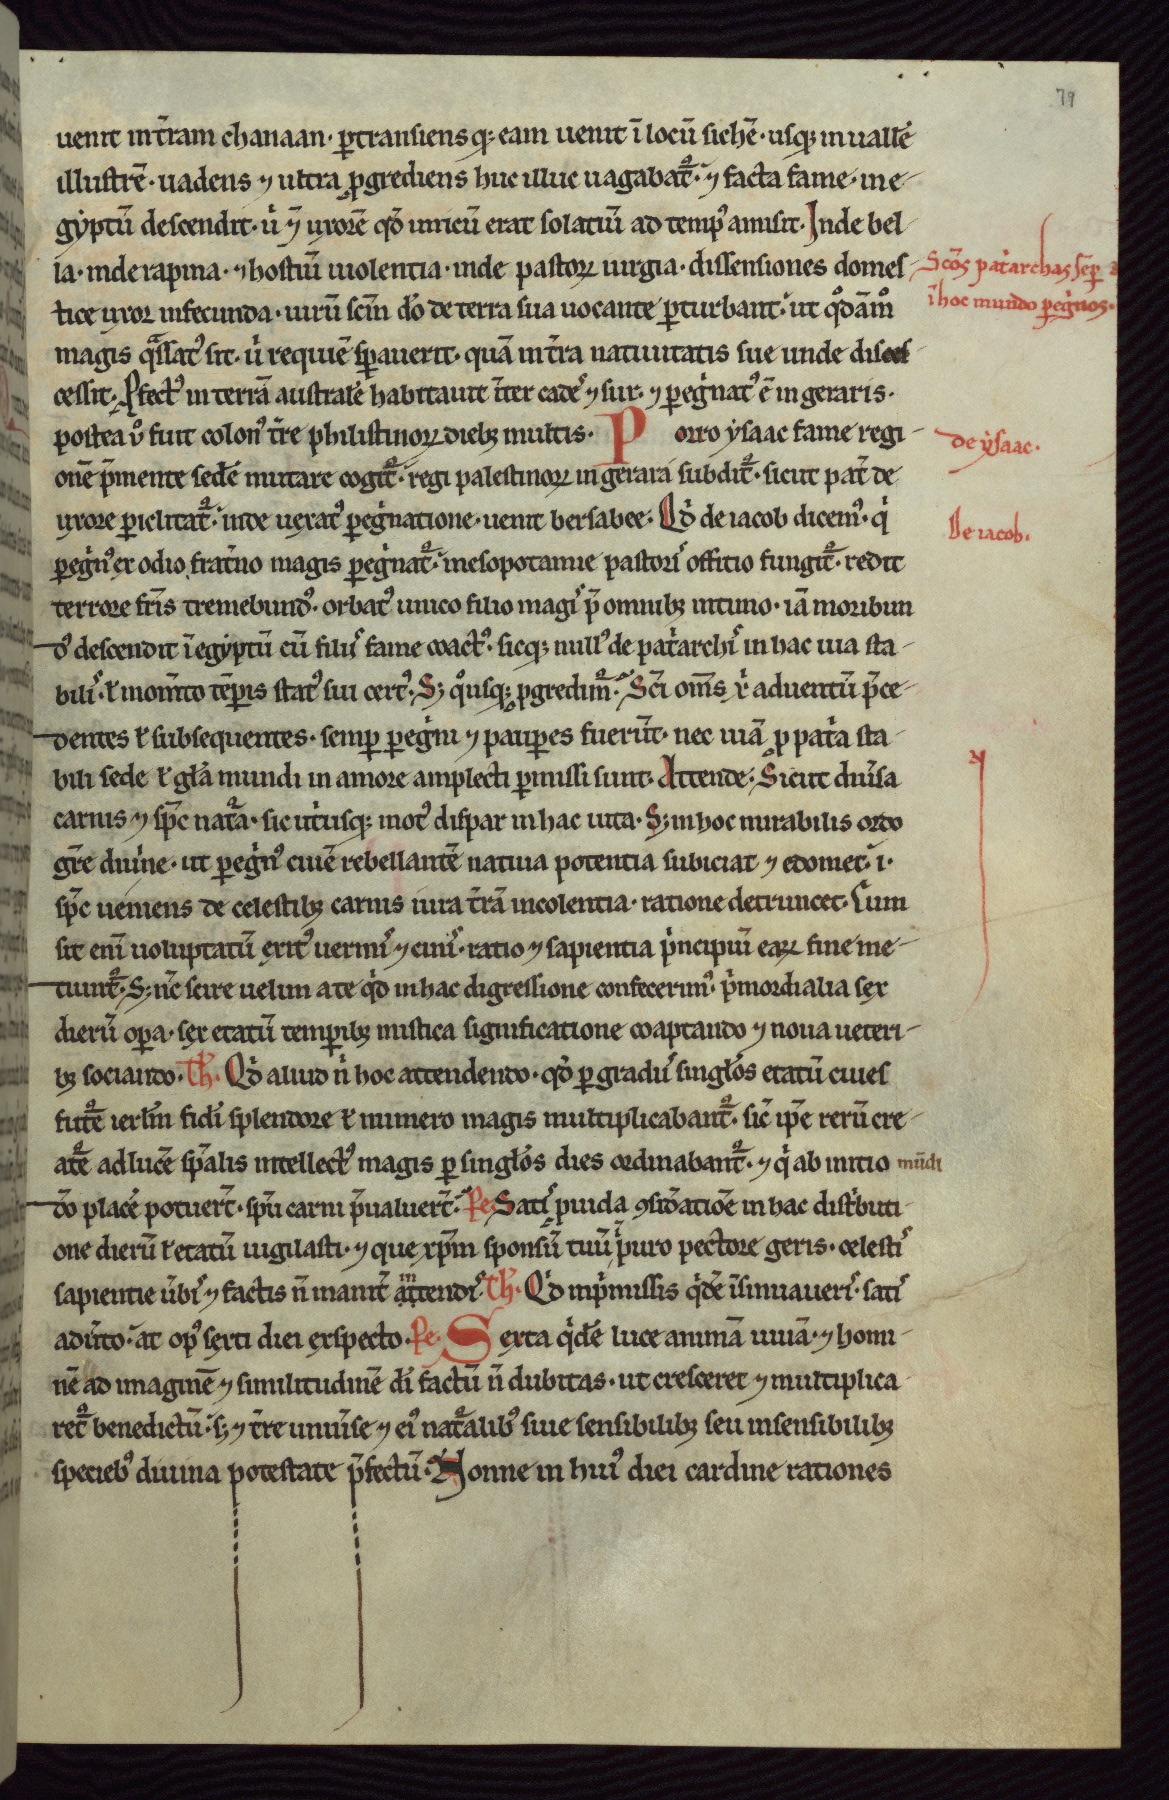 79
uenit int̄ram chanaan· ꝑtransiens qꝫ eam uenit ī locū sichē· usqꝫ in uallē
illustrē· uadens ⁊ ultra ꝓgrediens huc illuc uagabat᷑· ⁊ facta fame· in e-
gyptū descendit· ubi ⁊ uxorē qd̄ unicū erat solatiū ad tempꝰ amisit· Inde bel-
la· inde rapina· ⁊ hostiū uiolentia· inde pastoꝝ iurgia· dissensiones domes-
tice uxor infecunda· uirū scm̄ do de terra sua uocante ꝑturbant· ut qͦdāmͦ
magis qͣssatꝰ sit· ubi requiē sꝑauerit· quā int̄ra natiuitatis sue unde disces-
cessit· Ꝓfectꝰ in terrā australē habitauit int̄ cades ⁊ sur· ⁊ ꝑegͥnatꝰ ē in geraris·
postea uͦ fuit colonꝰ t̄re philistinoꝝ diebꝫ multis· Porro ysaac fame regi-
onē p̄mente sedē mutare cogit᷑· regi palestinoꝝ in gerara subdit᷑· sicut pat̄ de
uxore ꝑiclitat᷑· inde uexatꝰ ꝑegͥnatione· uenit bersabee· Qͥd de iacob dicemꝰ· qͥ
ꝑegͥnꝰ ex odio frat̄no magis ꝑegͥnat᷑· mesopotamie pastoris offitio fungit᷑· redit
terrore fr̄is tremebundꝰ· orbatꝰ unico filio magis p̄ omnibꝫ intimo· iā moribun
dꝰ descendit ī egyptū cū filiis fame coactꝰ· sicqꝫ nullꝰ de patͥarchis in hac uia sta-
bilis· ł momīto tēꝑis statꝰ sui certꝰ· Sꝫ qͦusqꝫ ꝓgredimur᷑· Sc̄i om̄s xͥ aduentū p̄ce-
dentes ł subsequentes· semꝑ ꝑegͥni ⁊ pauꝑes fuerūt· nec uiā ꝓ patͥa sta-
bili sede ł gl̄a mundi in amore amplecti ꝑmissi sunt· Attende· Sicut diuͥsa
carnis ⁊ sp̄c natura· sic utͥusqꝫ motꝰ dispar in hac uita· Sꝫ in hoc mirabilis ordo
gr̄e diuine· ut ꝑegͥnꝰ ciuē rebellantē natiua potentia subiciat ⁊ edomet· i·
sp̄c ueniens de celestibꝫ carnis iura t̄rā incolentia· ratione detruncet· Cum
sit enī uoluptatū exitꝰ uermis ⁊ cinis· ratio ⁊ sapientia pͥncipiū eaꝝ fine me-
tiunt᷑· Sꝫ nc̄ scire uelim a te qͥd in hac digressione confecerimꝰ· pͥmordialia sex
dierū oꝑa· sex etatū temꝑibꝫ mistica significatione coaptando ⁊ noua ueteri-
bꝫ sociando· Th̄· Qͥd aliud n̄ hoc attendendo· qd̄ ꝑ gradus singlōs etatū ciues
future ierlm̄ fidei splendore ł numero magis multiplicabant᷑· sic̄ ip̄e rerū cre-
ate ad lucē sp̄alis intellectꝰ magis ꝑ singlōs dies ordinabant᷑· ⁊ qͥ ab initio mūdi
do placē potuerīt· sp̄u carni p̄ualuerīt· Pe· Satis ꝓuida ꝯsidatiōe in hac distͥbuti-
one dierū ł etatū uigilasti· ⁊ que xp̄m sponsū tuū pͥ puro pectore geris· celestis
sapientie ūbis ⁊ factis n̄ inanit̄ intendis· Th̄· Qͥd in p̄missis qͥdē īsinuaueris· satis
aduto· at opꝰ sexti diei exspecto· Pe· Sexta qͥdē luce animā uiuā· ⁊ homi-
nē ad imaginē ⁊ similitudinē di factū n̄ dubitas· ut cresceret ⁊ multiplica-
ret᷑ benedictū· sꝫ ⁊ t̄re uniuͥse ⁊ eiꝰ natalibꝰ siue sensibilibꝫ seu insensibilibꝫ
speciebꝰ diuina potestate p̄fectū· Nonne in huiꝰ diei cardine rationes
Scōs patͥarchas semꝑ
ī hoc mundo ꝑegͥnos·
de ysaac·
De iacob·